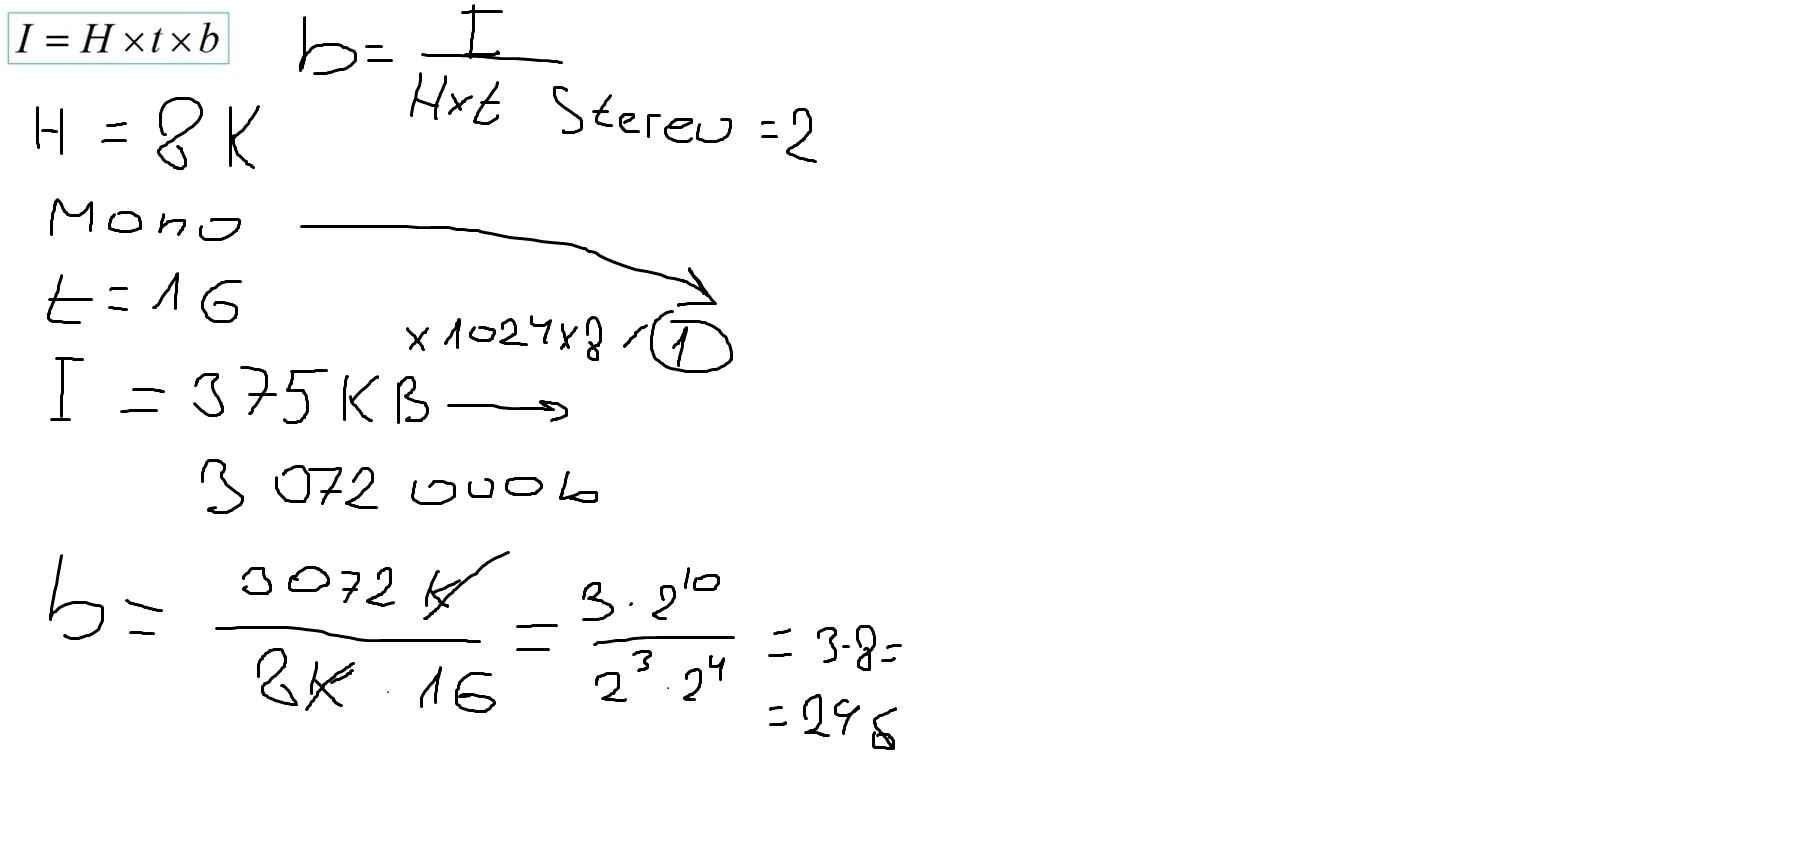 I = H × t × b
b = I / H×t
Stereo = 2
H = 8K
Mono
t = 16
×1024×8 / 1
I = 375 KB →
3 072 000 b
b = 3072 K / 8K · 16 = 3 · 2^10 / 2^3 · 2^4 = 3·8 =
= 24 б